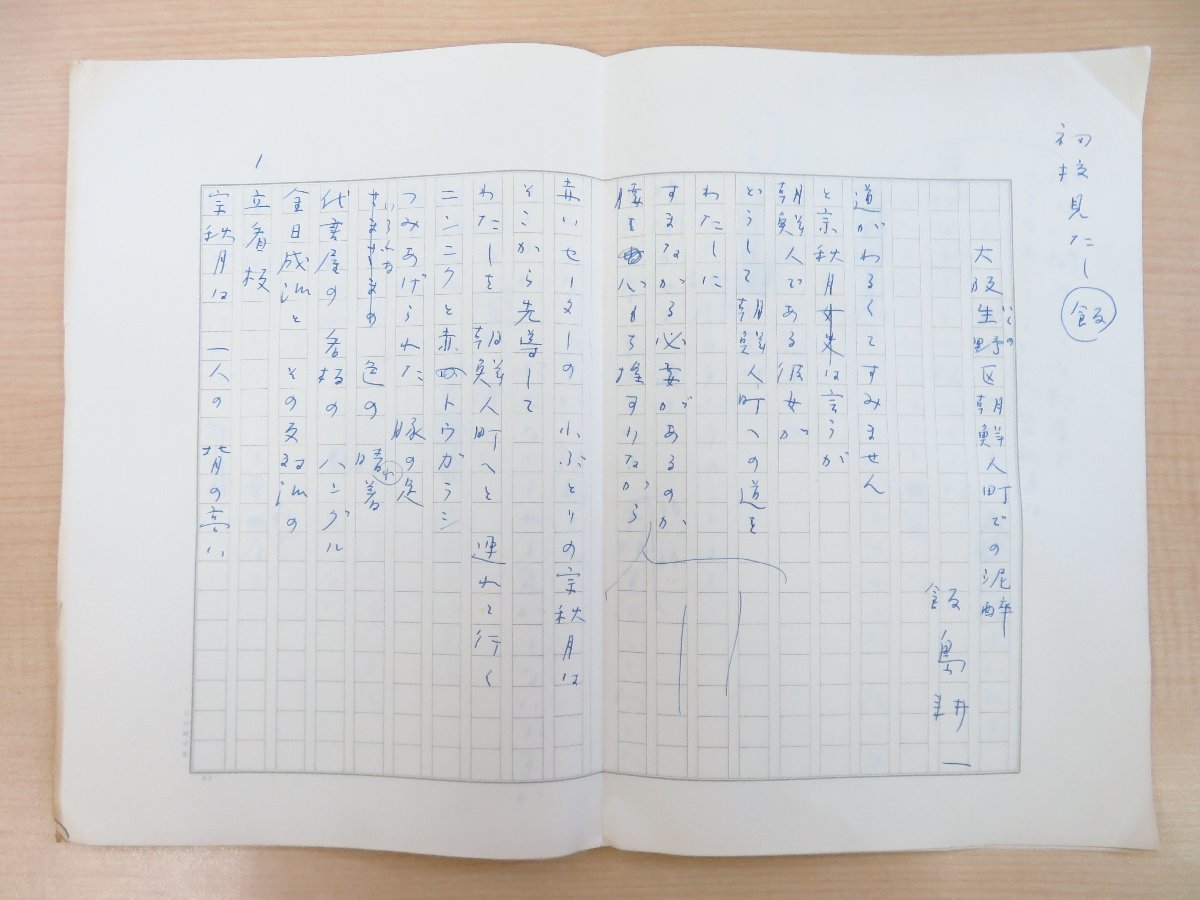 初校見たし 飯
大阪生野区朝鮮人町での泥酔
いくの
飯島耕一
道がわるくてすみません
と宗秋月女史は言うが
朝鮮人である彼女が
どうして朝鮮人町への道を
わたしに
すまながる必要があるのか
赤いセーターの 小ぶとりの宗秋月は
そこから先導して
わたしを 朝鮮人町へと 連れて行く
ニンニクと赤いトウガラシ
つみあげられた 豚の足
さまざまの 色の 晴れ着
代書屋の 看板の ハングル
金日成派と その反対派の
立看板
宗秋月は 一人の 背の高い
1